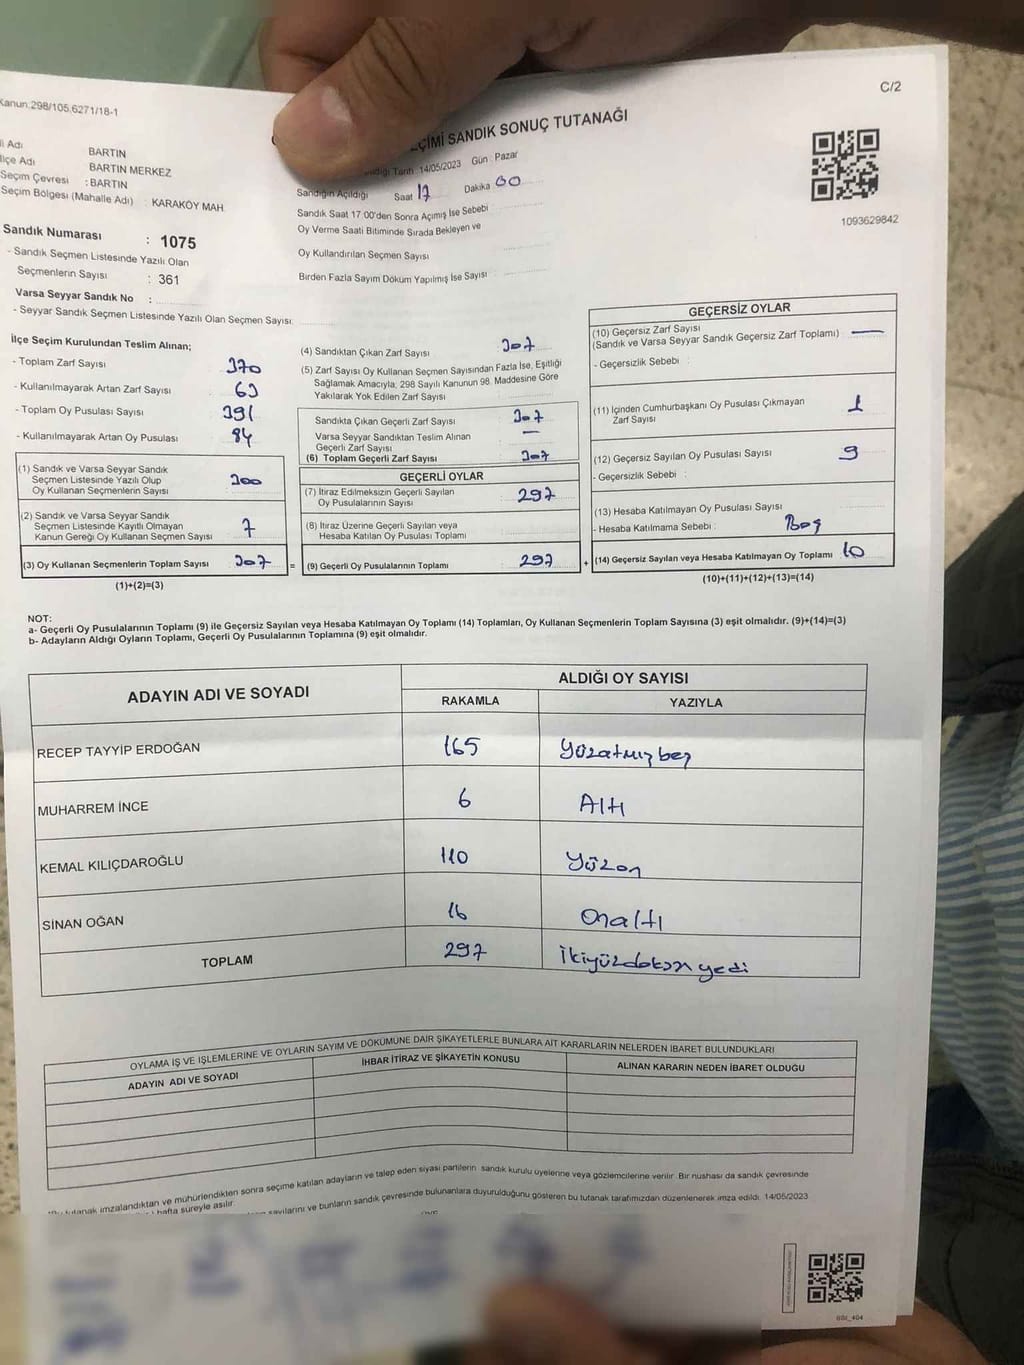 Kanun:298/105,6271/18-1
C/2
SEÇİMİ SANDIK SONUÇ TUTANAĞI
İl Adı BARTIN
İlçe Adı BARTIN MERKEZ
Seçim Çevresi : BARTIN
Seçim Bölgesi (Mahalle Adı) : KARAKÖY MAH.
Tarih : 14/05/2023 Gün : Pazar
Sandığın Açıldığı Saat 17 Dakika 00
Sandık Saat 17:00'den Sonra Açımış İse Sebebi :
Oy Verme Saati Bitiminde Sırada Bekleyen ve
Oy Kullandırılan Seçmen Sayısı
Birden Fazla Sayım Döküm Yapılmış İse Sayısı :
1093629842
Sandık Numarası : 1075
- Sandık Seçmen Listesinde Yazılı Olan
Seçmenlerin Sayısı : 361
Varsa Seyyar Sandık No :
- Seyyar Sandık Seçmen Listesinde Yazılı Olan Seçmen Sayısı:
İlçe Seçim Kurulundan Teslim Alınan;
- Toplam Zarf Sayısı 370
- Kullanılmayarak Artan Zarf Sayısı 63
- Toplam Oy Pusulası Sayısı 391
- Kullanılmayarak Artan Oy Pusulası 84
(1) Sandık ve Varsa Seyyar Sandık
Seçmen Listesinde Yazılı Olup
Oy Kullanan Seçmenlerin Sayısı 300
(2) Sandık ve Varsa Seyyar Sandık
Seçmen Listesinde Kayıtlı Olmayan
Kanun Gereği Oy Kullanan Seçmen Sayısı 7
(3) Oy Kullanan Seçmenlerin Toplam Sayısı 307
(1)+(2)=(3)
=
(4) Sandıktan Çıkan Zarf Sayısı 307
(5) Zarf Sayısı Oy Kullanan Seçmen Sayısından Fazla İse, Eşitliği
Sağlamak Amacıyla, 298 Sayılı Kanunun 98. Maddesine Göre
Yakılarak Yok Edilen Zarf Sayısı
Sandıkta Çıkan Geçerli Zarf Sayısı 307
Varsa Seyyar Sandıktan Teslim Alınan
Geçerli Zarf Sayısı —
(6) Toplam Geçerli Zarf Sayısı 307
GEÇERLİ OYLAR
(7) İtiraz Edilmeksizin Geçerli Sayılan
Oy Pusulalarının Sayısı 297
(8) İtiraz Üzerine Geçerli Sayılan veya
Hesaba Katılan Oy Pusulası Toplamı
(9) Geçerli Oy Pusulalarının Toplamı 297
+
GEÇERSİZ OYLAR
(10) Geçersiz Zarf Sayısı
(Sandık ve Varsa Seyyar Sandık Geçersiz Zarf Toplamı) —
- Geçersizlik Sebebi :
(11) İçinden Cumhurbaşkanı Oy Pusulası Çıkmayan
Zarf Sayısı 1
(12) Geçersiz Sayılan Oy Pusulası Sayısı 9
- Geçersizlik Sebebi :
(13) Hesaba Katılmayan Oy Pusulası Sayısı
- Hesaba Katılmama Sebebi : Boş
(14) Geçersiz Sayılan veya Hesaba Katılmayan Oy Toplamı 10
(10)+(11)+(12)+(13)=(14)
NOT:
a- Geçerli Oy Pusulalarının Toplamı (9) ile Geçersiz Sayılan veya Hesaba Katılmayan Oy Toplamı (14) Toplamları, Oy Kullanan Seçmenlerin Toplam Sayısına (3) eşit olmalıdır. (9)+(14)=(3)
b- Adayların Aldığı Oyların Toplamı, Geçerli Oy Pusulalarının Toplamına (9) eşit olmalıdır.
ADAYIN ADI VE SOYADI
ALDIĞI OY SAYISI
RAKAMLA YAZIYLA
RECEP TAYYİP ERDOĞAN 165 Yüzatmışbeş
MUHARREM İNCE 6 Altı
KEMAL KILIÇDAROĞLU 110 Yüzon
SİNAN OĞAN 16 Onaltı
TOPLAM 297 İkiyüzdoksanyedi
OYLAMA İŞ VE İŞLEMLERİNE VE OYLARIN SAYIM VE DÖKÜMÜNE DAİR ŞİKAYETLERLE BUNLARA AİT KARARLARIN NELERDEN İBARET BULUNDUKLARI
ADAYIN ADI VE SOYADI İHBAR İTİRAZ VE ŞİKAYETİN KONUSU ALINAN KARARIN NEDEN İBARET OLDUĞU
tutanak imzalandıktan ve mühürlendikten sonra seçime katılan adayların ve talep eden siyasi partilerin sandık kurulu üyelerine veya gözlemcilerine verilir. Bir nushası da sandık çevresinde
hafta süreyle asılır.
sayılarını ve bunların sandık çevresinde bulunanlara duyurulduğunu gösteren bu tutanak tarafımızdan düzenlenerek imza edildi. 14/05/2023